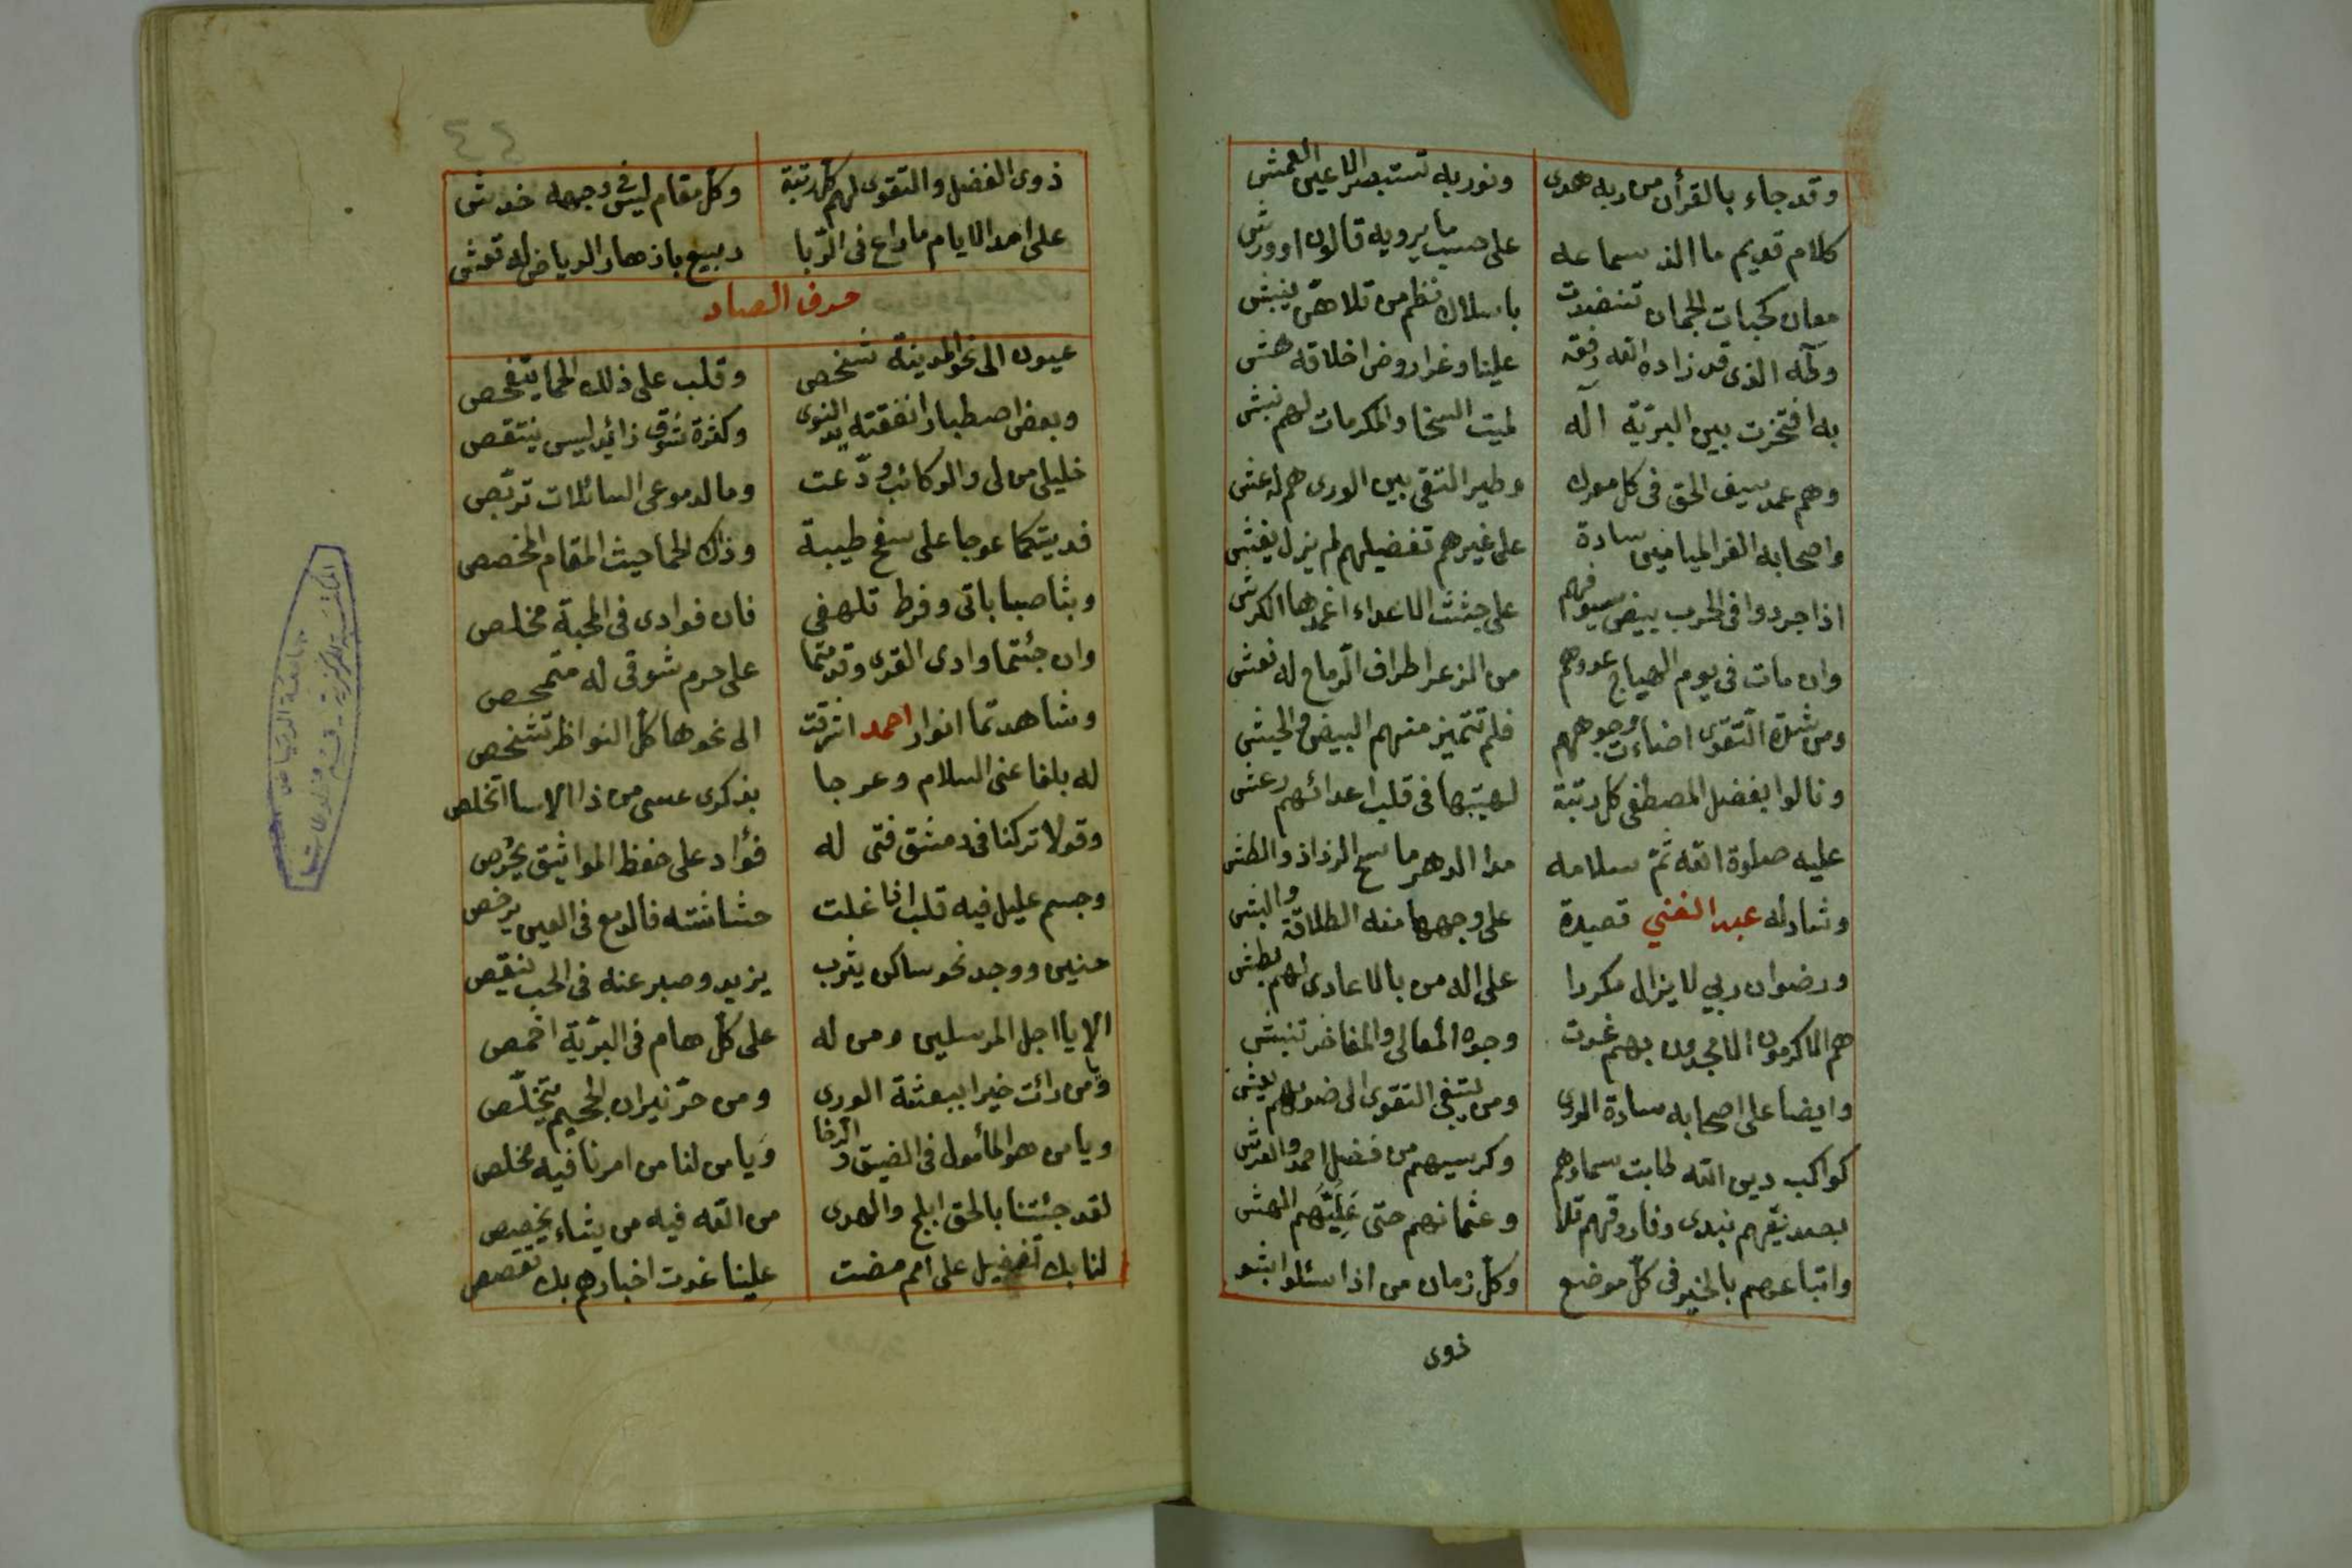 وقد جاء بالقرأن من ربه هدى ونور به تستبصر الاعين العمش
كلام قديم ما الذ سماعه على حسب ما يرويه قالون او ورش
معان كحبات الجمان تنضدت باسلاك نظم من تلاهن ينبش
وآله الذى قد زاده الله رفقة علينا وغدا روض اخلاقه هش
به افتخرت بين البرية آله لميت السخا والمكرمات لهم نبش
وهم عمد سيف الحق فى كل مورك وطير التقى بين الورى هم له عش
واصحابه الغر الميامين سادة على غيرهم تفضيلهم لم يزل يفش
اذا جردوا فى الحرب بيض سيوفهم على جثث الاعداء اغمدها الكرش
وان مات فى يوم الهياج عدوهم من الزعر اطراف الرماح له نعش
ومن شدة التقوى اضاءت وجوههم فلم تتميز منهم البيض والحبش
ونالوا بفضل المصطفى كل رتبة لهيبتها فى قلب اعدائهم رعش
عليه صلوة الله ثم سلامه مدا الدهر ما سح الرذاذ والطش
وشاد له عبد الغني قصيدة على وجهها منه الطلاقة والبش
ورضوان ربي لا يزال مكررا على اله من بالاعادى لهم بطش
هم الاكرمون الامجدون بهم غدت وجوه المعالى والمفاخر تنبش
وايضا على اصحابه سادة الورى ومن يتبغي التقوى الى ضوئهم يعش
كواكب دين الله طابت سماؤهم وكرسيهم من فضل احمد والعرش
بصديقهم نبدى وفاروقهم تلا وعثمانهم حتى عَلِيَّهم الهش
واتباعهم بالخير فى كل موضع وكل زمان من اذا سئلوا بشو
ذوى
٤٤
ذوى الفضل والتقوى لهم كل رتبة وكل مقام ليس فى وجهه خدش
على امد الايام ما راع فى الربا ربيع بازهار الرياض له نقش
حرف الصاد
عيون الى نحو المدينة شخص وقلب على ذلك الحما يتفحص
وبعض اصطبار انفقته يد النوى وكثرة شوق زائد ليس ينتقص
خليلى من لى والركائب ودّعت وما لدموعى السائلات تربّص
فديتكما عوجا على سفح طيبة وذاك الحما حيث المقام المخصص
وبثا صباباتى وفرط تلهفي فان فوادى فى المحبة مخلص
وان جئتما وادى القرى وقدمتما على حرم شوقى له متمحص
وشاهدتما انوار احمد اشرقت الى نحوها كل النواظر تشخص
له بلغا عنى السلام وعرجا بذكرى عسى من ذا الاسا اتخلص
وقولا تركنا فى دمشق فتى له فؤاد على حفظ المواثيق يحرص
وجسم عليل فيه قلب اذا غلت حشاشته فالدمع فى العين يرخص
حنين ووجد نحو ساكن يثرب يزيد وصبر عنه فى الحب ينقص
الا يا اجل المرسلين ومن له على كل هام فى البرية اخمص
ويا من رأت خيرا ببعثته الورى ومن حرّ نيران الجحيم تتخلّص
ويا من هو المأمول فى الضيق والرخا ويا من لنا من امرنا فيه مخلص
لقد جئتنا بالحق ابلج والهدى من الله فيه من يشاء يخصص
لنا بك تفضيل على امم مضت علينا غدت اخبارهم بك تقصص